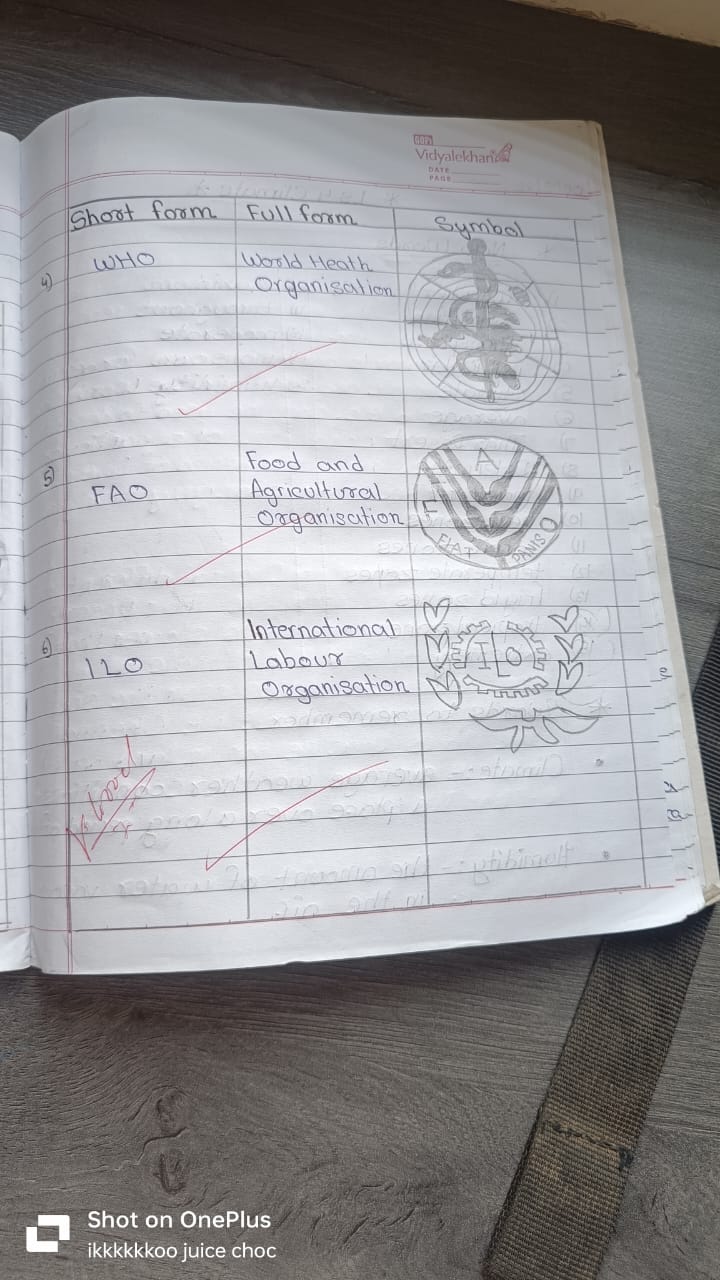 GOPI
Vidyalekhan
DATE
PAGE
Short form Full form Symbol
4) WHO World Heath
Organisation
5) FAO Food and
Agricultural
Organisation
F A O
FIAT PANIS
6) ILO International
Labour
Organisation
ILO
V. Good
Shot on OnePlus
ikkkkkkoo juice choc